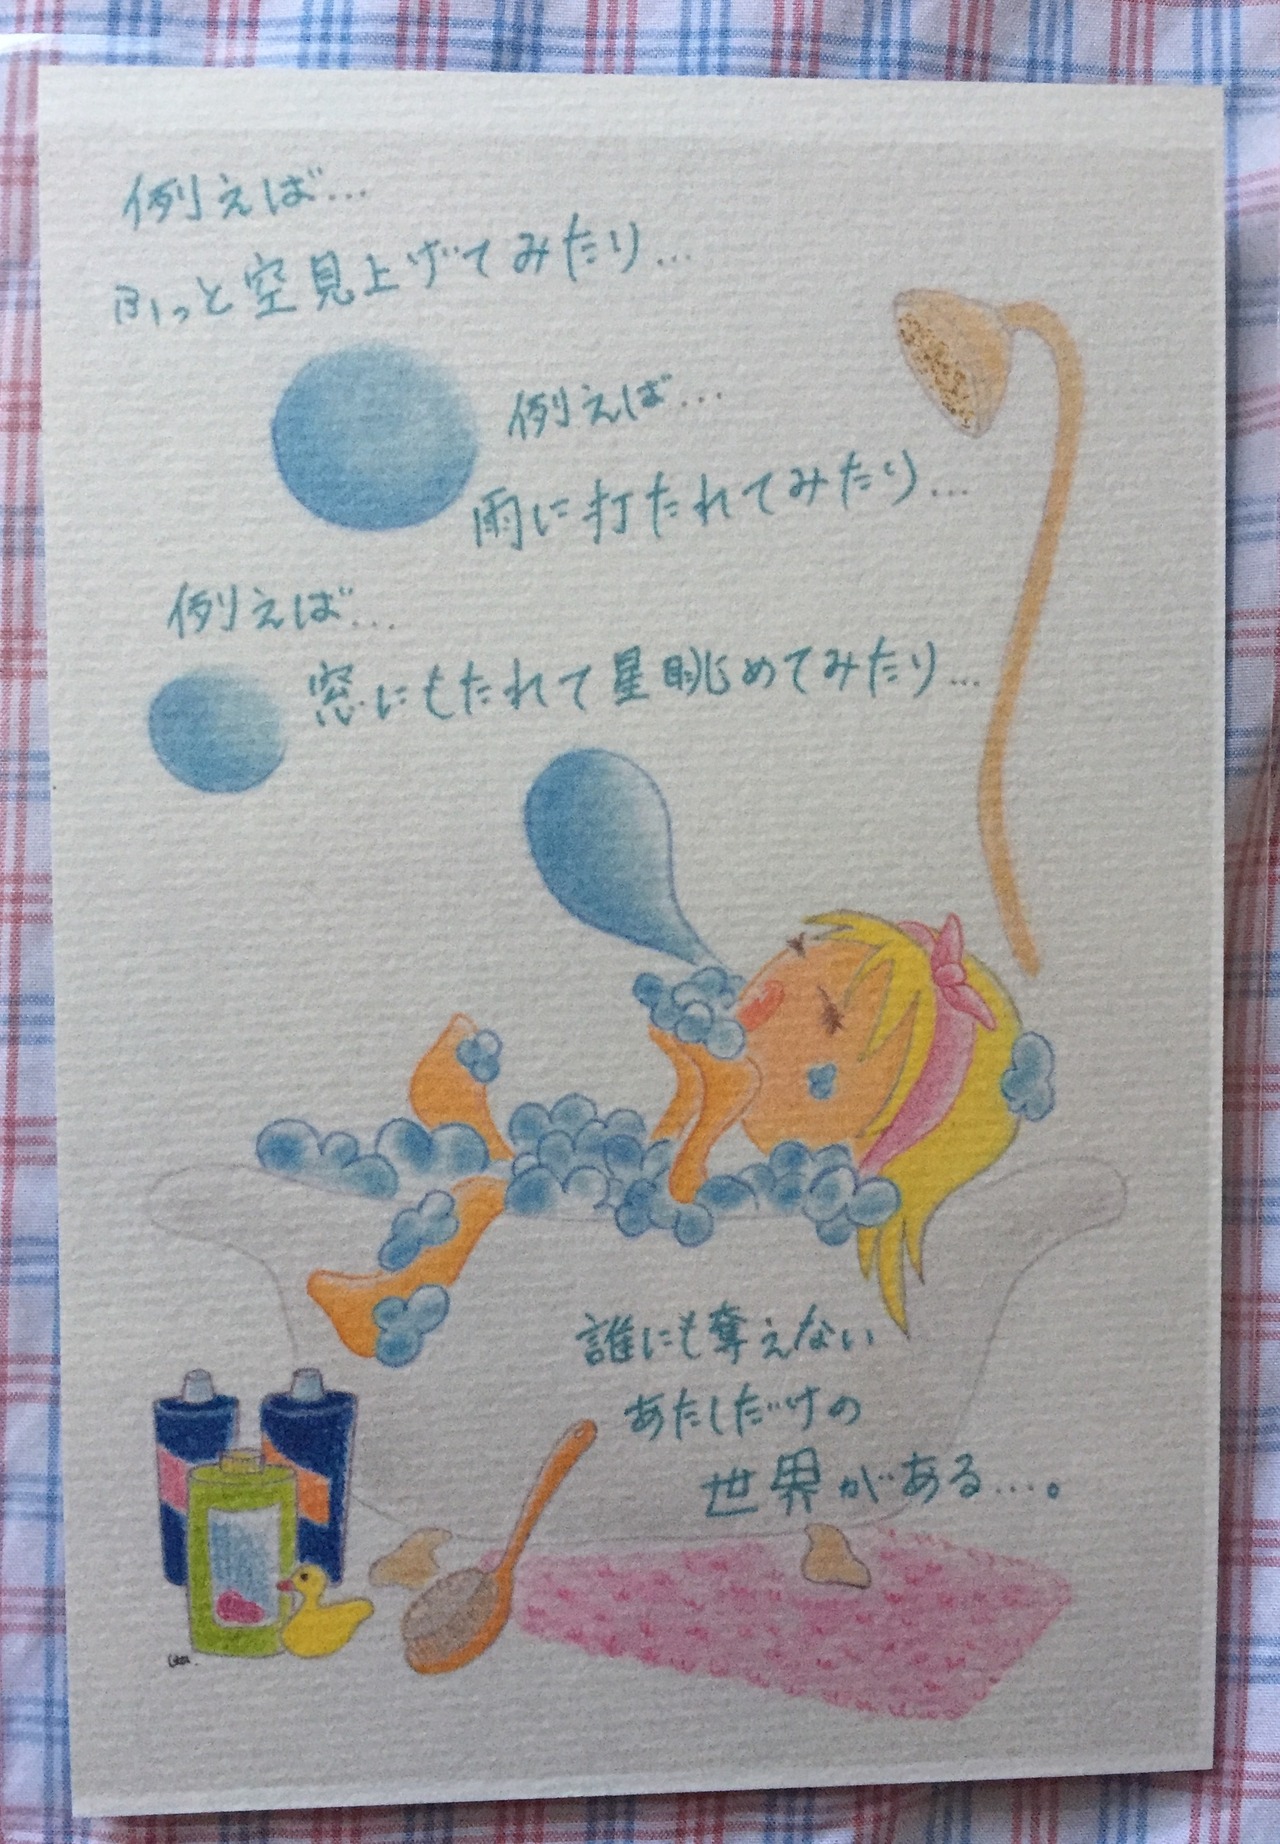 例えば…
ふっと空見上げてみたり…
例えば…
雨に打たれてみたり…
例えば…
窓にもたれて星眺めてみたり…
誰にも奪えない
あたしだけの
世界がある…。